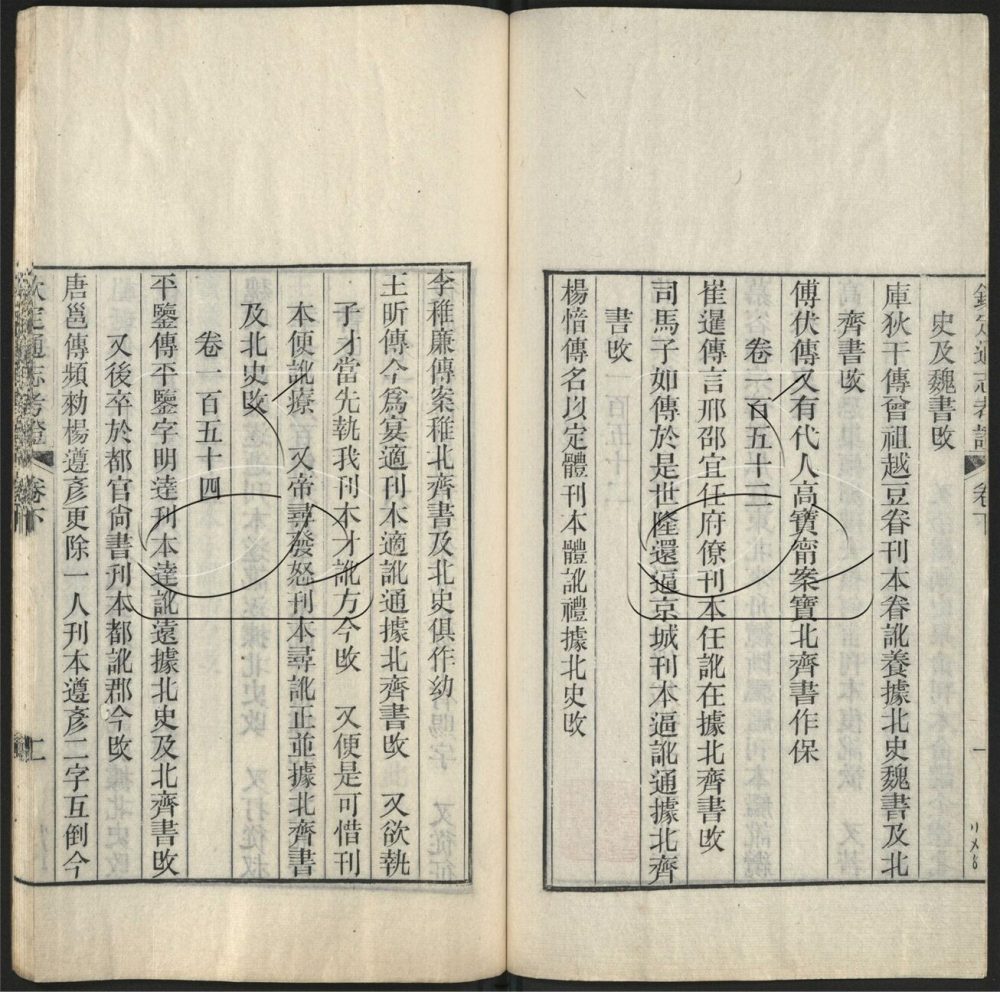 史及魏書改
庫狄干傳曾祖越豆眷刊本眷訛養據北史魏書及北
齊書改
傅伏傳又有代人高寶甯案寶北齊書作保
卷一百五十三
崔暹傳言邢邵宜任府僚刊本任訛在據北齊書改
司馬子如傳於是世隆還逼京城刊本逼訛通據北齊
書改
楊愔傳名以定體刊本體訛禮據北史改
李稚廉傳案稚北齊書及北史俱作幼
王昕傳今爲宴適刊本適訛通據北齊書改 又欲執
子才當先執我刊本才訛方今改 又便是可惜刊
本便訛療 又帝尋發怒刊本尋訛正並據北齊書
及北史改
卷一百五十四
平鑒傳平鑒字明達刊本達訛遠據北史及北齊書改
又後卒於都官尚書刊本都訛郡今改
唐邕傳頻勑楊遵彥更除一人刊本遵彥二字互倒今
欽定通志考證 卷下